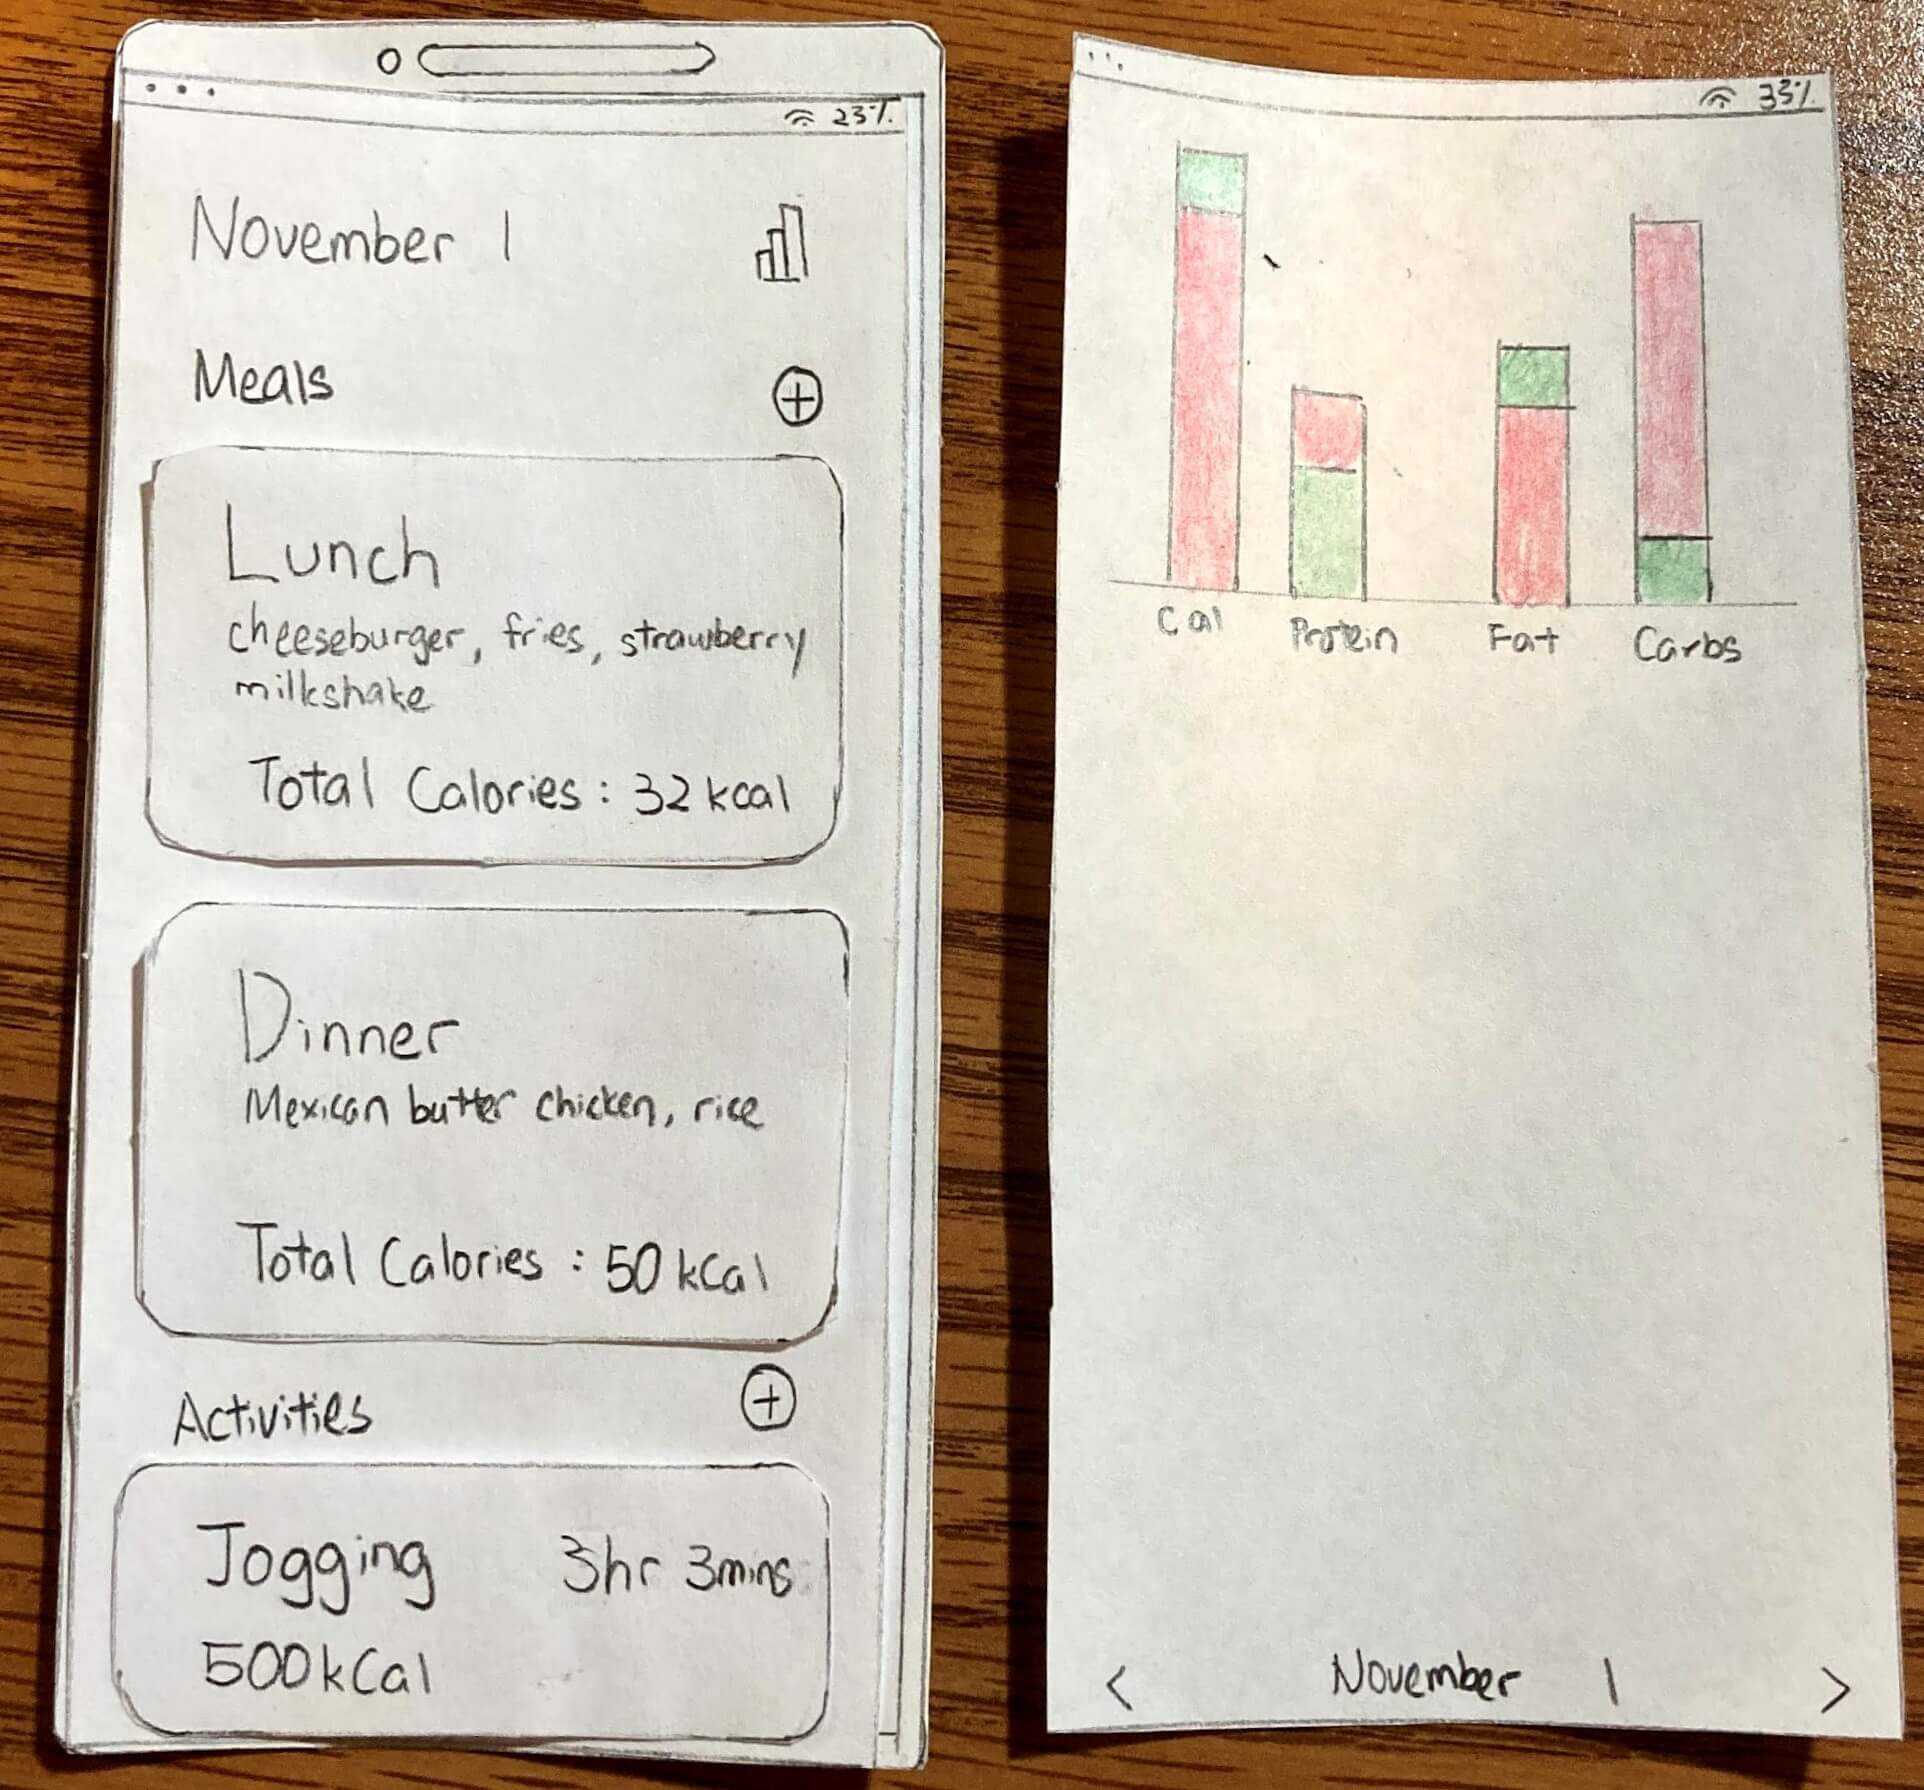 23%
November 1
Meals
Lunch
cheeseburger, fries, strawberry
milkshake
Total Calories : 32 kcal
Dinner
Mexican butter chicken, rice
Total Calories : 50 kCal
Activities
Jogging 3hr 3mins
500 kCal
33%
Cal Protein Fat Carbs
< November 1 >